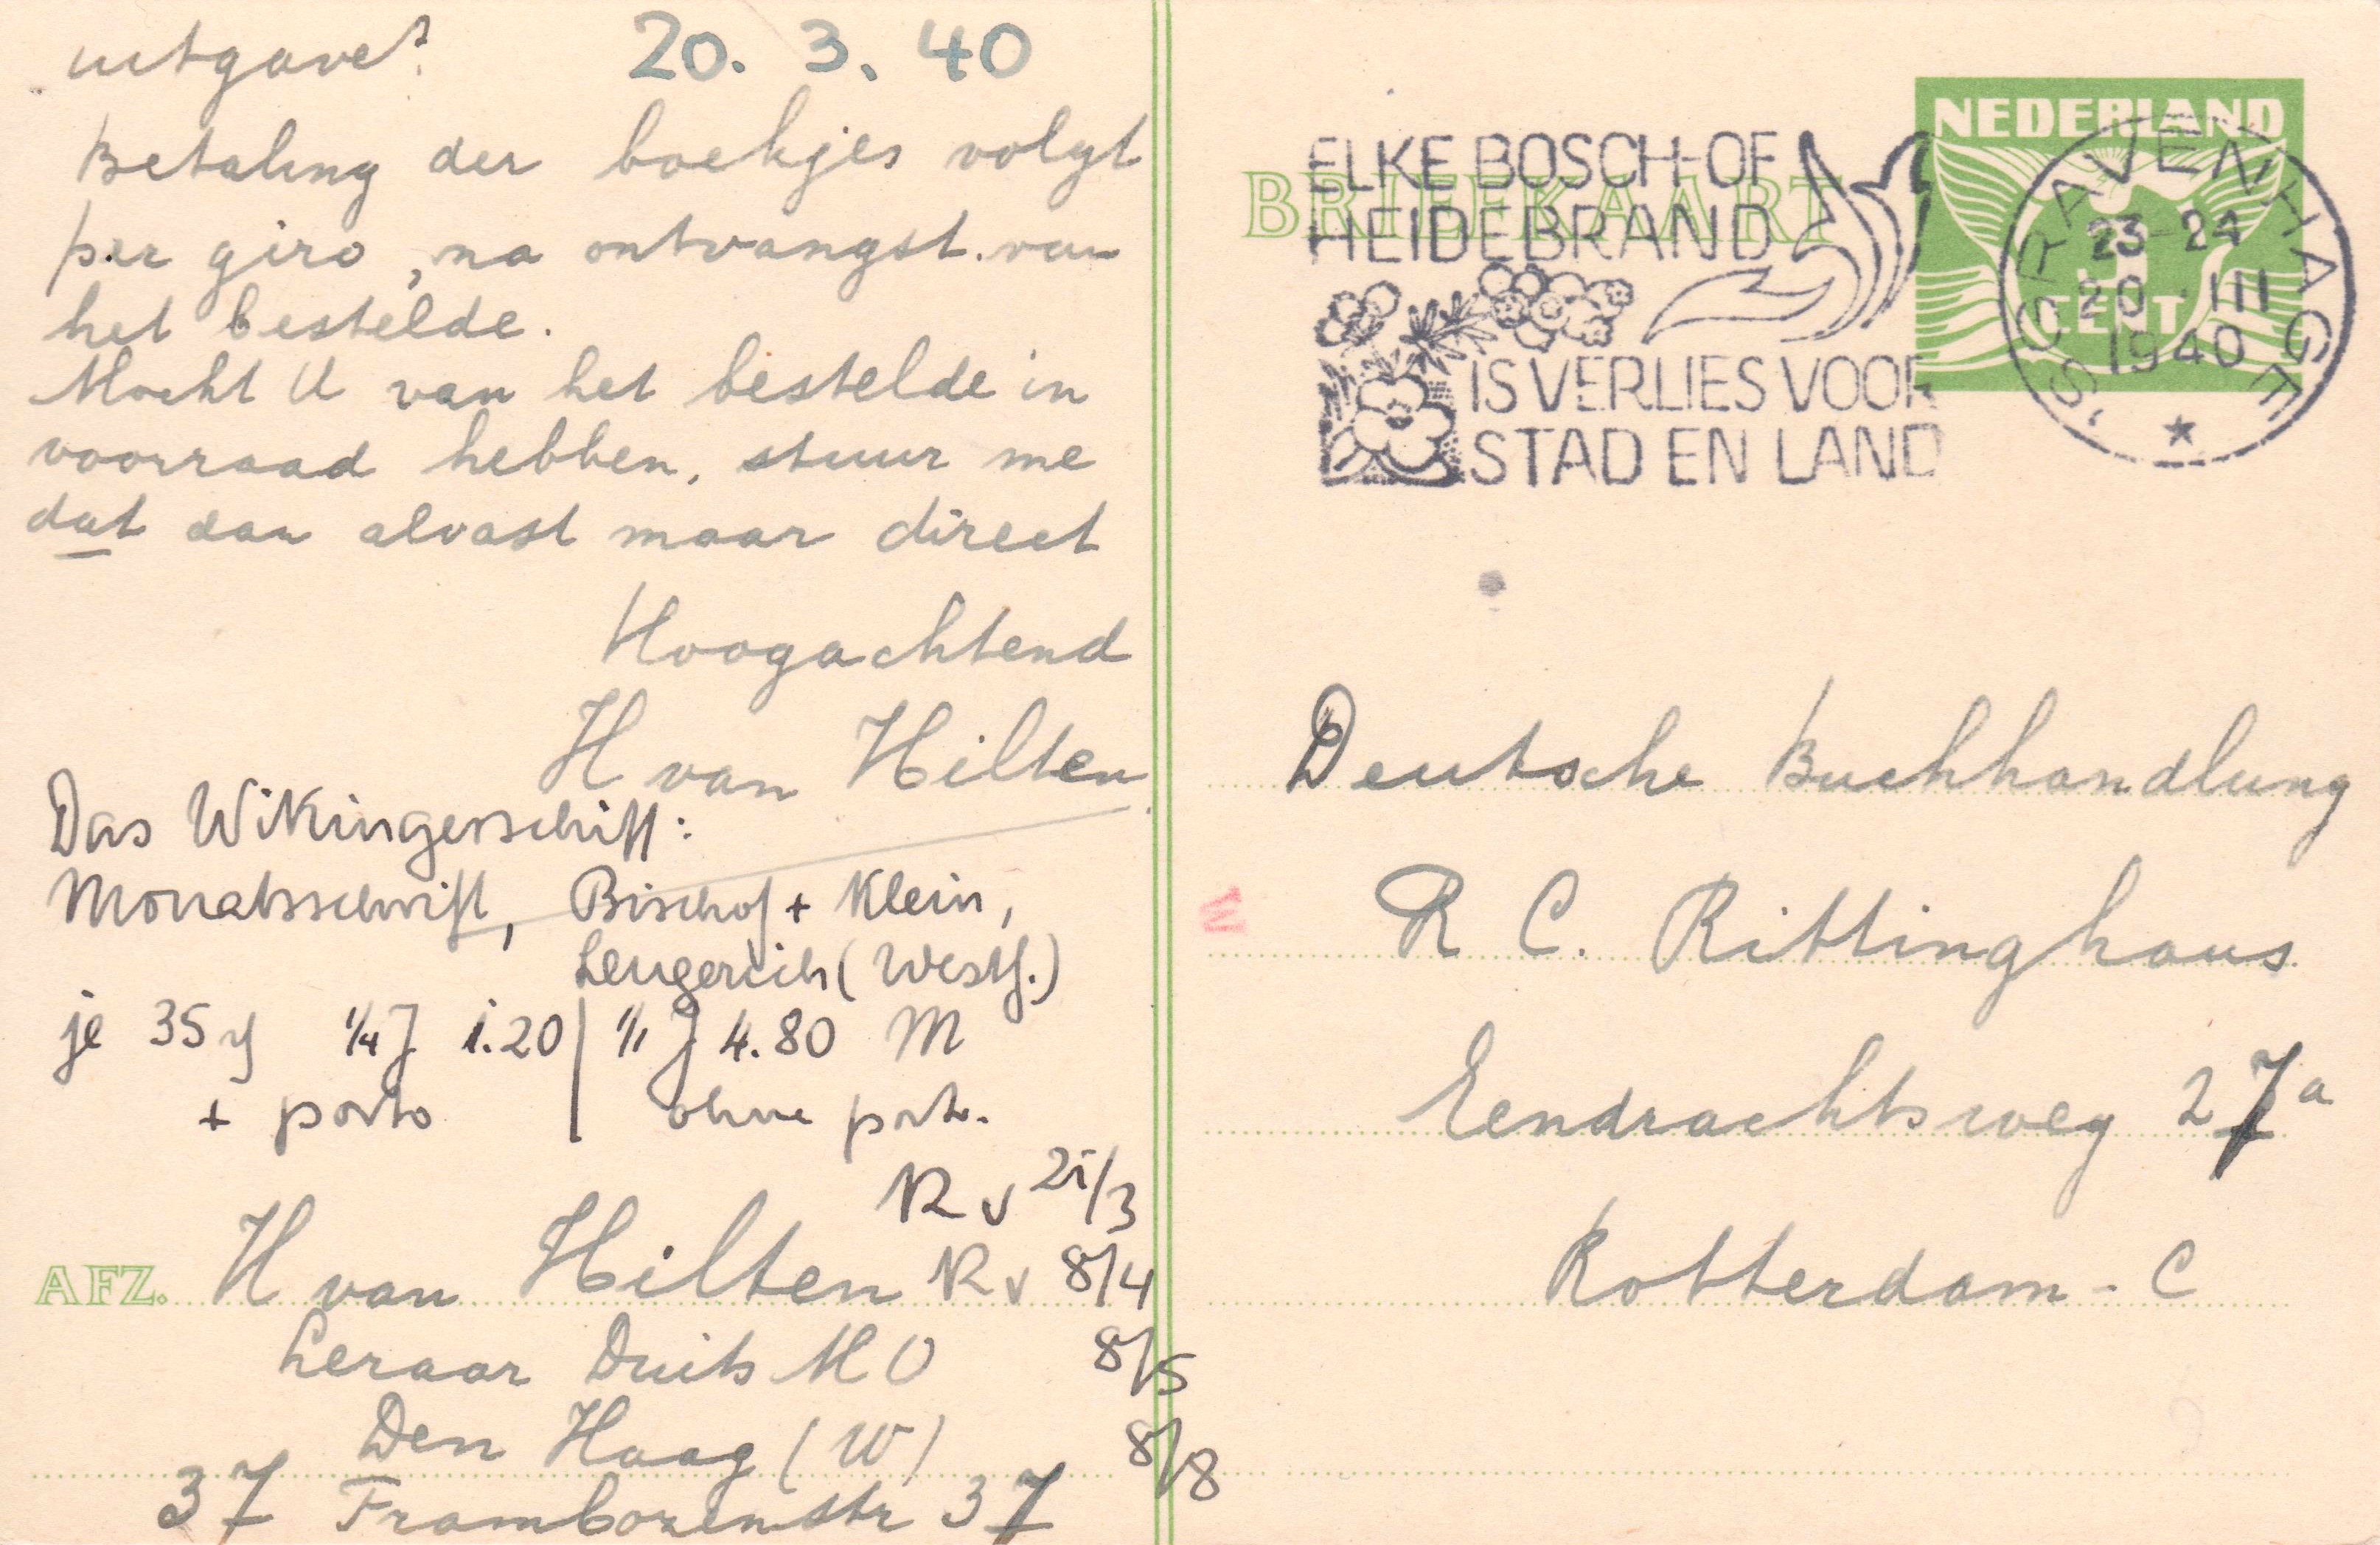 uitgave?
20. 3. 40
Betaling der boekjes volgt
per giro, na ontvangst van
het bestelde.
Mocht U van het bestelde in
voorraad hebben, stuur me
dat dan alvast maar direct
Hoogachtend
H van Hilten
Das Wikingerschiff:
Monatsschrift, Bischof + Klein,
Lengerich (Westf.)
je 35 ₰ 1/4 J 1.20 | 1/1 J 4.80 M
+ porto | ohne porto.
R v 21/3
AFZ. H van Hilten R v 8/4
Leraar Duits M O 8/5
Den Haag (W) 8/8
37 Frambozenstr 37
BRIEFKAART
ELKE BOSCH-OF
HEIDEBRAND
IS VERLIES VOOR
STAD EN LAND
NEDERLAND
3
CENT
'S GRAVENHAGE
23-24
20 III
1940
Deutsche Buchhandlung
R C. Rittinghaus
Eendrachtsweg 27a
Rotterdam - C